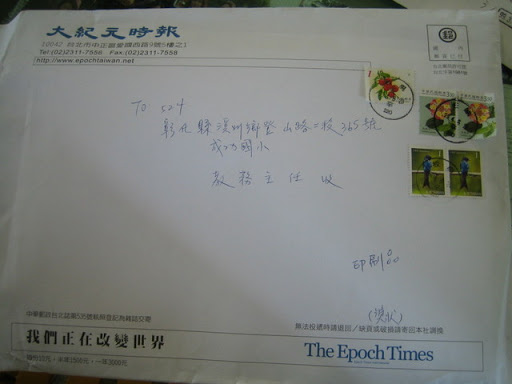 大紀元時報
10042 台北市中正區愛國西路9號5樓之1
Tel:(02)2311-7556 Fax:(02)2311-7558
http://www.epochtaiwan.net
TO 524
彰化縣溪州鄉登山路二段365號
成功國小
教務主任 收
印刷品
(獎狀)
無法投遞時請退回/缺頁或破損請寄回本社調換
我們正在改變世界
The Epoch Times